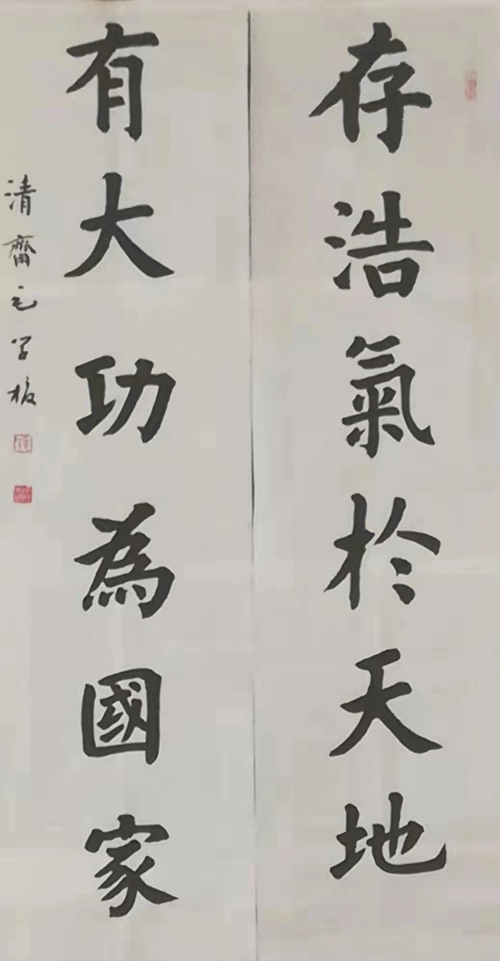 存浩氣於天地
有大功為國家
清齋